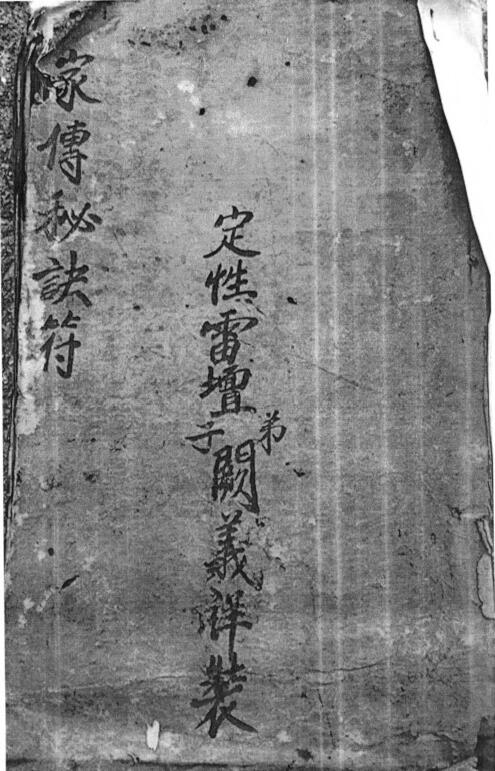 定性雷壇弟子闕義祥裝
家傳秘訣符